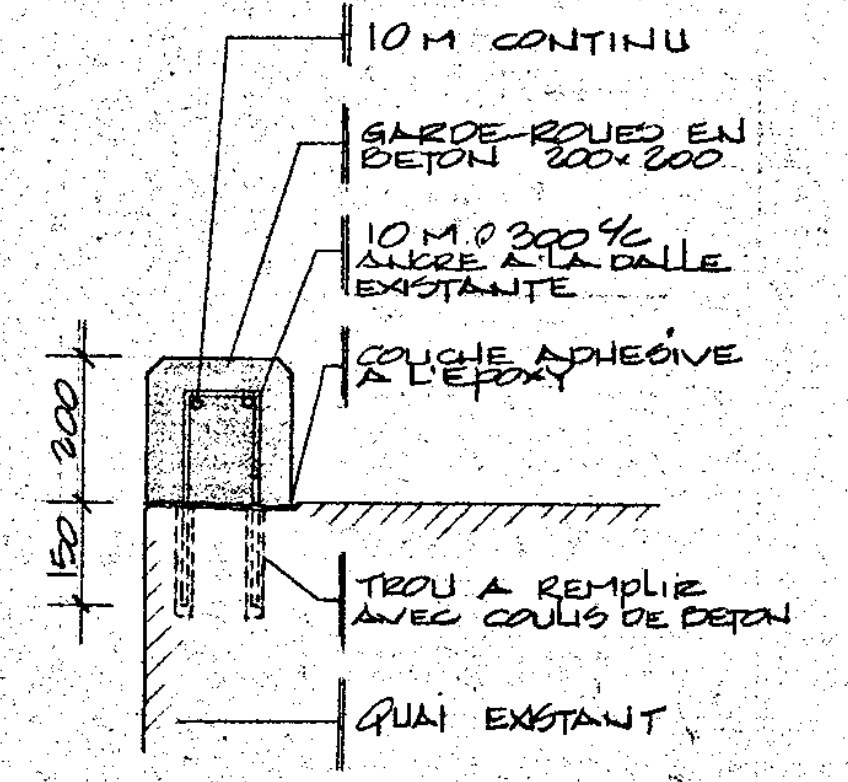 10 M CONTINU
GARDE-ROUES EN
BETON 200x200
10 M @ 300 c/c
ANCRE A LA DALLE
EXISTANTE
COUCHE ADHESIVE
A L'EPOXY
200
150
TROU A REMPLIR
AVEC COULIS DE BETON
QUAI EXISTANT